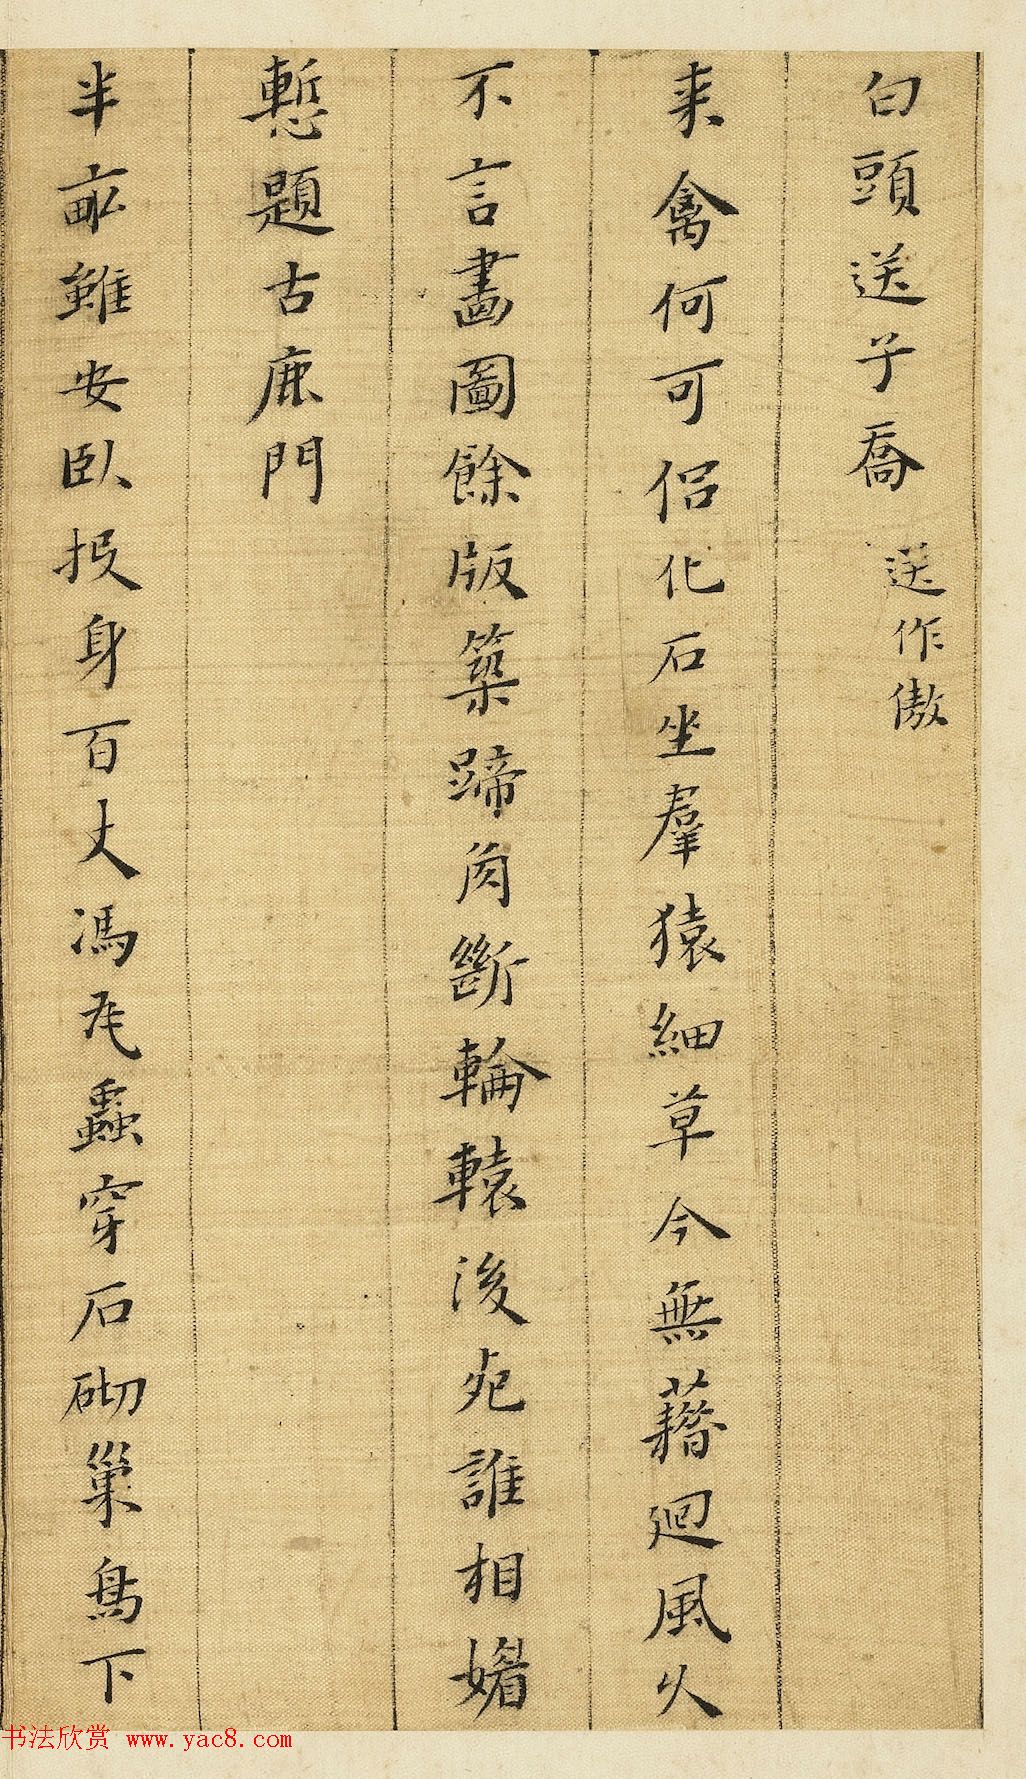 白頭送子喬 送作傲
来禽何可侣化石坐羣猿細草今無藉迴風火
不言畫圖餘版築蹄角斷輪轅後死誰相媚
慙題古鹿門
半畝雖安臥投身百丈馮死蟲穿石砌巢鳥下
书法欣赏 www.yac8.com